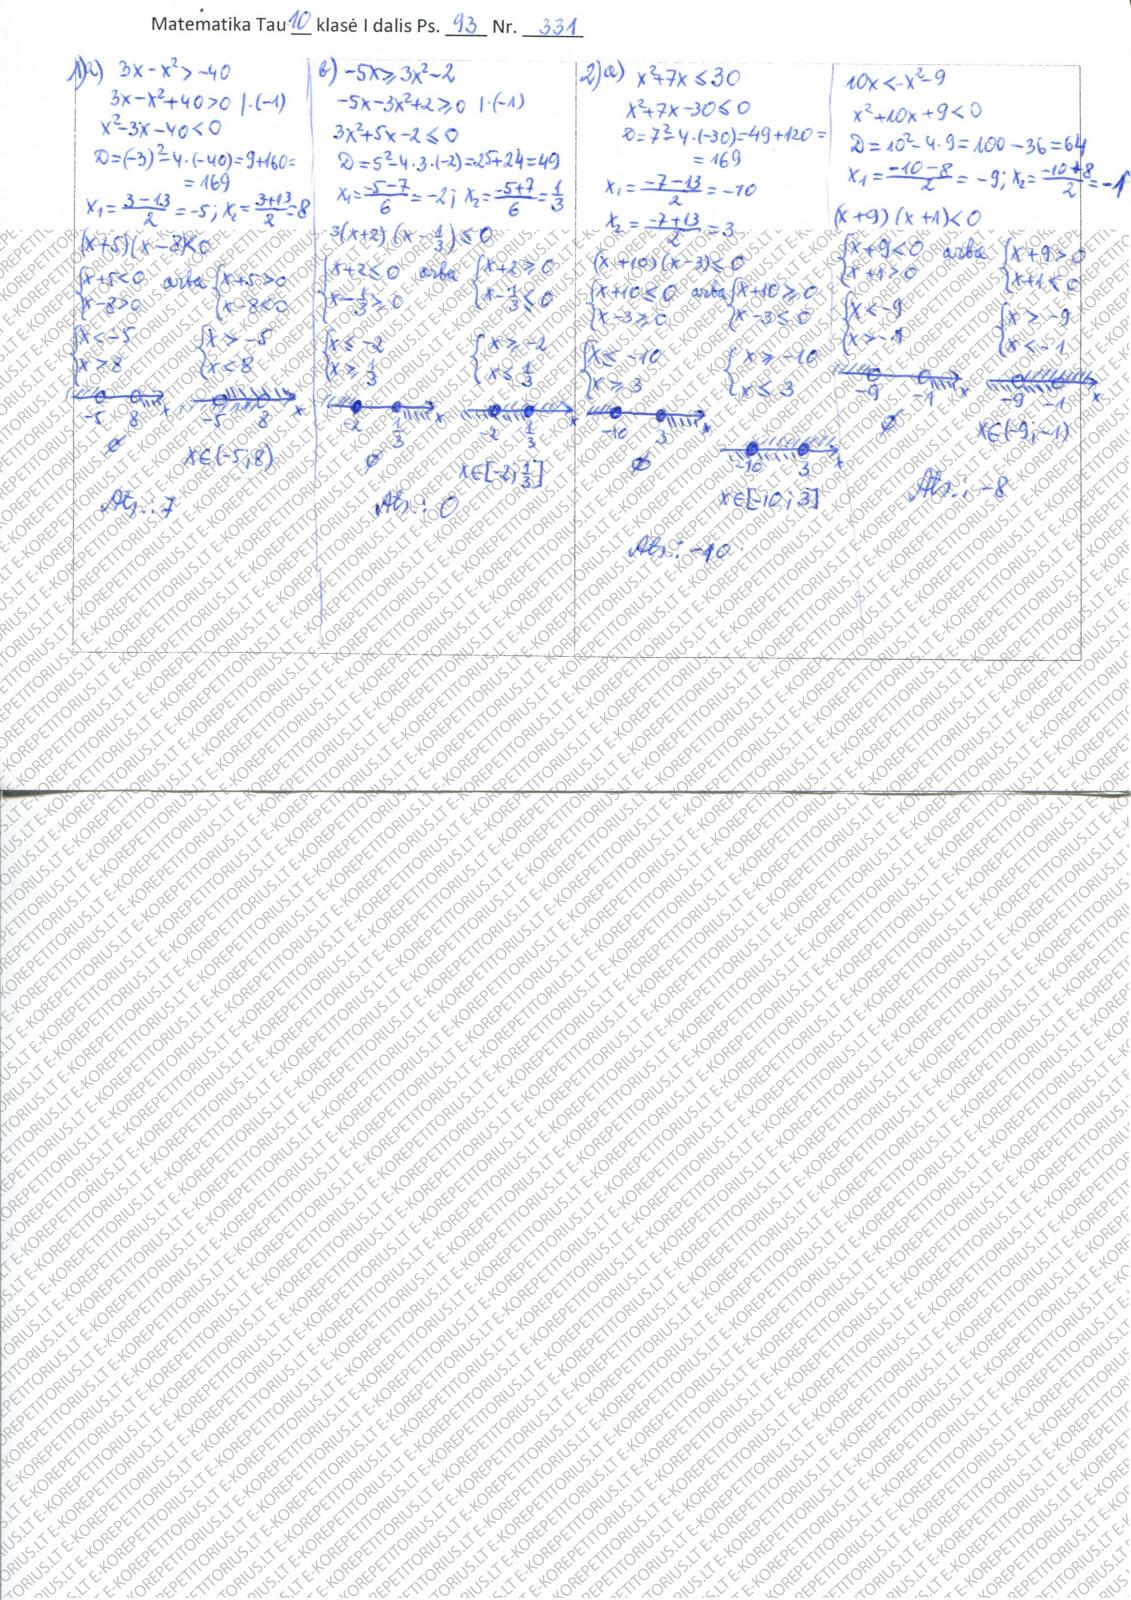 Matematika Tau 10 klasė I dalis Ps. 93 Nr. 331
1) a) 3x-x²>-40
3x-x²+40>0 |·(-1)
x²-3x-40<0
D=(-3)²-4·(-40)=9+160=
=169
x₁=\frac{3-13}{2}=-5; x₂=\frac{3+13}{2}=8
(x+5)(x-8)<0
{x+5<0 arba {x+5>0
{x-8>0 {x-8<0
{x<-5 {x>-5
{x>8 {x<8
-5 8 x -5 8 x
∅ x∈(-5;8)
Ats.: 7
b) -5x≥3x²-2
-5x-3x²+2≥0 |·(-1)
3x²+5x-2≤0
D=5²-4·3·(-2)=25+24=49
x₁=\frac{-5-7}{6}=-2; x₂=\frac{-5+7}{6}=\frac{1}{3}
3(x+2)(x-\frac{1}{3})≤0
{x+2≤0 arba {x+2≥0
{x-\frac{1}{3}≥0 {x-\frac{1}{3}≤0
{x≤-2 {x≥-2
{x≥\frac{1}{3} {x≤\frac{1}{3}
-2 \frac{1}{3} x -2 \frac{1}{3} x
∅ x∈[-2;\frac{1}{3}]
Ats.: 0
2) a) x²+7x≤30
x²+7x-30≤0
D=7²-4·(-30)=49+120=
=169
x₁=\frac{-7-13}{2}=-10
x₂=\frac{-7+13}{2}=3
(x+10)(x-3)≤0
{x+10≤0 arba {x+10≥0
{x-3≥0 {x-3≤0
{x≤-10 {x≥-10
{x≥3 {x≤3
-10 3 x
∅ -10 3 x
x∈[-10;3]
Ats.: -10
10x<-x²-9
x²+10x+9<0
D=10²-4·9=100-36=64
x₁=\frac{-10-8}{2}=-9; x₂=\frac{-10+8}{2}=-1
(x+9)(x+1)<0
{x+9<0 arba {x+9>0
{x+1>0 {x+1<0
{x<-9 {x>-9
{x>-1 {x<-1
-9 -1 x -9 -1 x
∅ x∈(-9;-1)
Ats.: -8
E-KOREPETITORIUS.LT